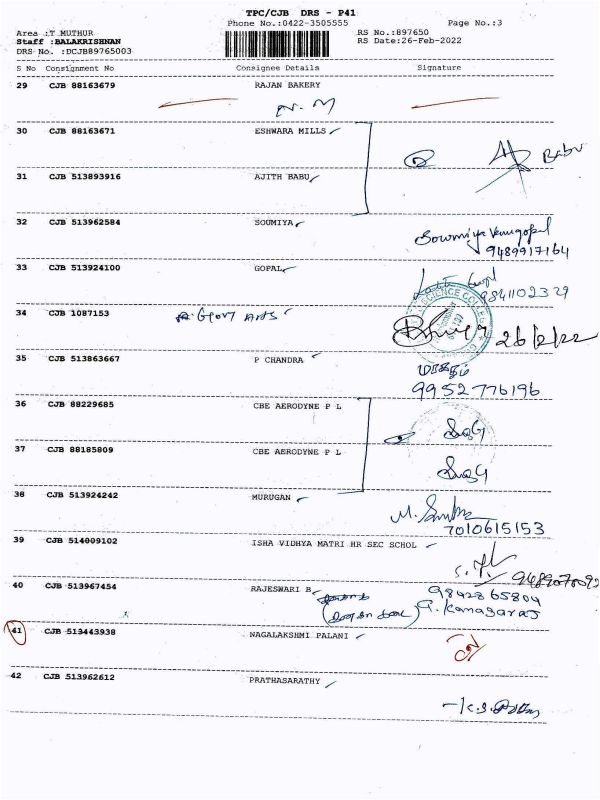 TPC/CJB DRS - P41
Phone No.:0422-3505555 Page No.:3
Area :T_MUTHUR RS No.:897650
Staff :BALAKRISHNAN RS Date:26-Feb-2022
DRS No. :DCJB89765003
S No Consignment No Consignee Details Signature
29 CJB 88163679 RAJAN BAKERY
30 CJB 88163671 ESHWARA MILLS
Babu
31 CJB 513893916 AJITH BABU
32 CJB 513962584 SOUMIYA
Sowmiya Venugopal
9489917164
33 CJB 513924100 GOPAL
9841102329
34 CJB 1087153 Govt Arts
SCIENCE COLLEGE
26/2/22
35 CJB 513863667 P CHANDRA
9952776196
36 CJB 88229685 CBE AERODYNE P L
37 CJB 88185809 CBE AERODYNE P L
38 CJB 513924242 MURUGAN
7010615153
39 CJB 514009102 ISHA VIDHYA MATRI HR SEC SCHOL
40 CJB 513967454 RAJESWARI B
9842865804
Kanagaraj
41 CJB 513443938 NAGALAKSHMI PALANI
42 CJB 513962612 PRATHASARATHY